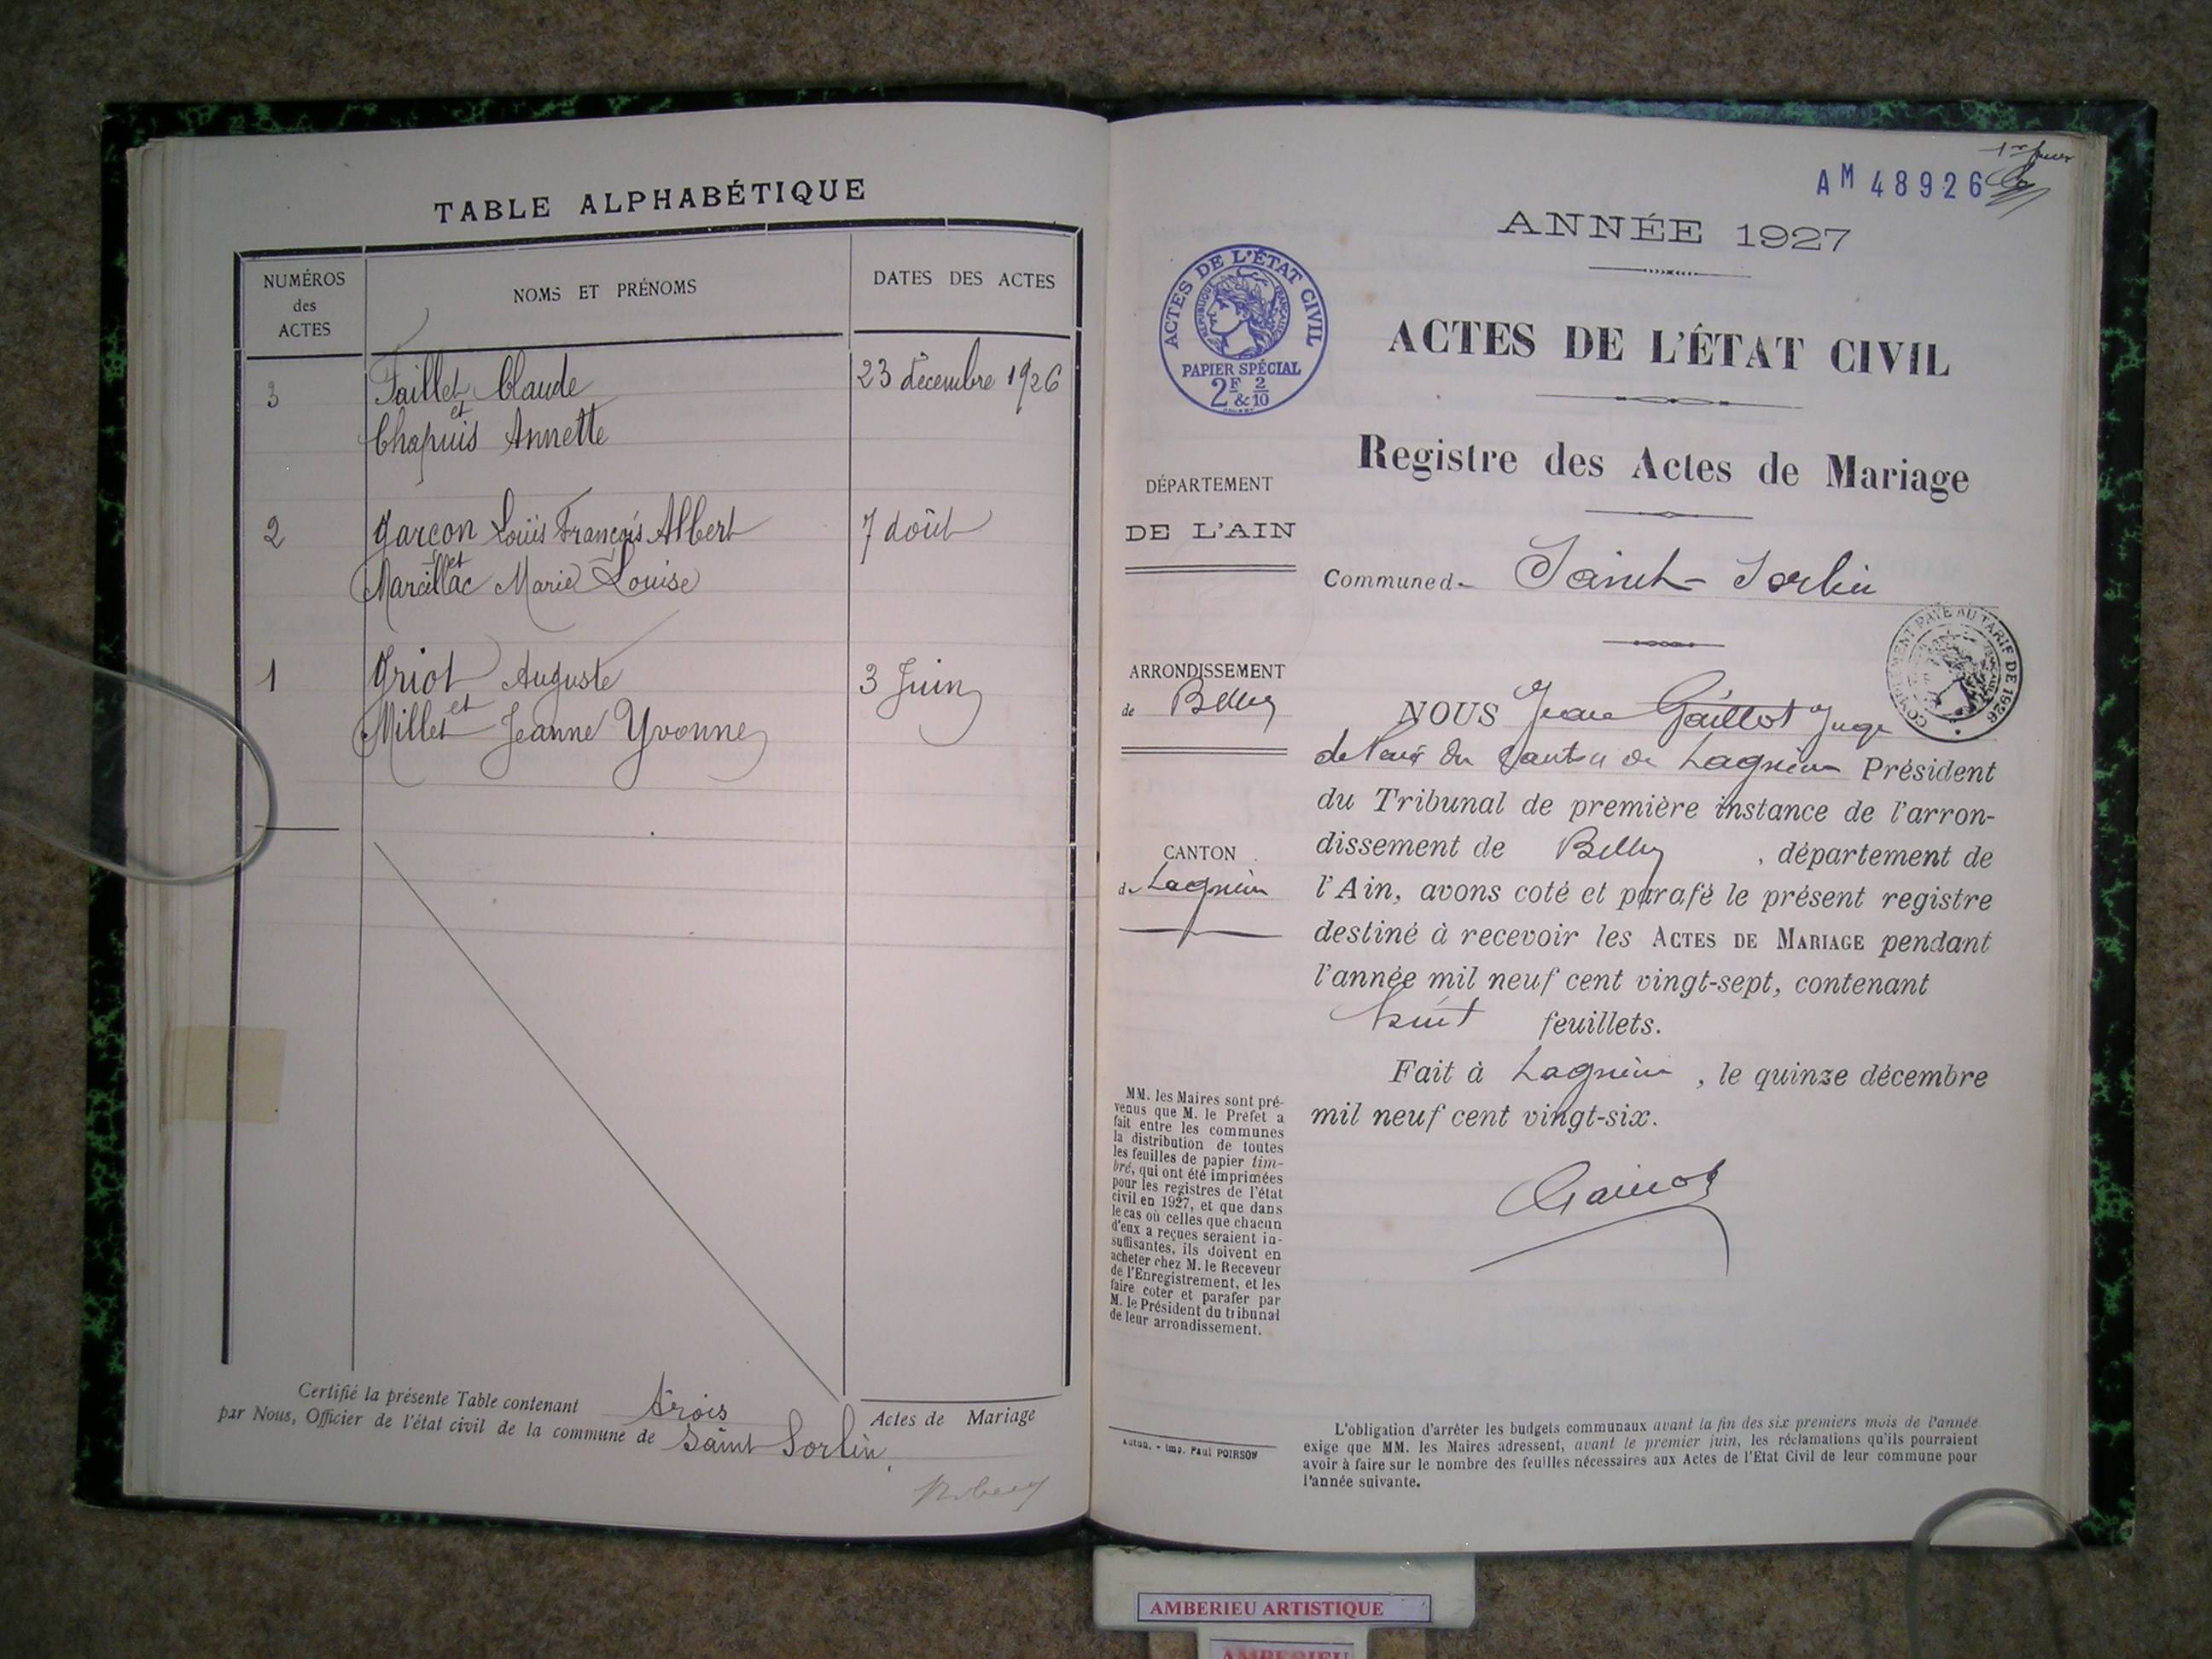 TABLE ALPHABÉTIQUE
NUMÉROS
des
ACTES
NOMS ET PRÉNOMS
DATES DES ACTES
3
Faillet Claude
23 décembre 1926
et
Chapuis Annette
2
Garçon Louis François Albert
7 Août
et
Marcillac Marie Louise
1
Griot Auguste
3 Juin
et
Millet Jeanne Yvonne
Certifié la présente Table contenant trois Actes de Mariage
par Nous, Officier de l'état civil de la commune de Saint Sorlin.
AM 48926
ANNÉE 1927
ACTES DE L'ÉTAT CIVIL
RÉPUBLIQUE FRANÇAISE
PAPIER SPÉCIAL
2F & 2/10
ACTES DE L'ÉTAT CIVIL
Registre des Actes de Mariage
DÉPARTEMENT
DE L'AIN
Commune d Saint-Sorlin
COMPLEMENT PAYÉ AU TARIF DE 1926
ARRONDISSEMENT
de Belley
CANTON
de Lagnieu
NOUS Jean Gaillot Juge
de Paix du Canton de Lagnieu Président
du Tribunal de première instance de l'arron-
dissement de Belley, département de
l'Ain, avons coté et parafé le présent registre
destiné à recevoir les ACTES DE MARIAGE pendant
l'année mil neuf cent vingt-sept, contenant
huit feuillets.
Fait à Lagnieu, le quinze décembre
mil neuf cent vingt-six.
MM. les Maires sont pré-
venus que M. le Préfet a
fait entre les communes
la distribution de toutes
les feuilles de papier tim-
bré, qui ont été imprimées
pour les registres de l'état
civil en 1927, et que dans
le cas où celles que chacun
d'eux a reçues seraient in-
suffisantes, ils doivent en
acheter chez M. le Receveur
de l'Enregistrement, et les
faire coter et parafer par
M. le Président du tribunal
de leur arrondissement.
Autun. - Imp. Paul POIRSON
L'obligation d'arrêter les budgets communaux avant la fin des six premiers mois de l'année
exige que MM. les Maires adressent, avant le premier juin, les réclamations qu'ils pourraient
avoir à faire sur le nombre des feuilles nécessaires aux Actes de l'Etat Civil de leur commune pour
l'année suivante.
AMBERIEU ARTISTIQUE
AMBERIEU